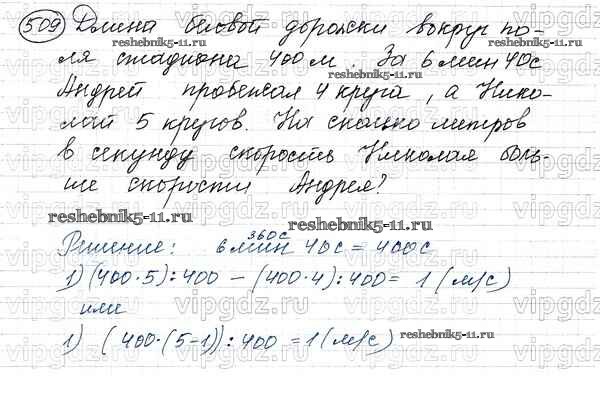 509 Длина беговой дорожки вокруг по-
ля стадиона 400 м. За 6 мин 40с
Андрей пробежал 4 круга, а Нико-
лай 5 кругов. На сколько метров
в секунду скорость Николая боль-
ше скорости Андрея?
reshebnik5-11.ru
reshebnik5-11.ru
reshebnik5-11.ru
360с
Решение: 6 мин 40с = 400с
1) (400·5):400 – (400·4):400= 1 (м/с)
или
1) (400·(5-1)):400 =1(м/с)
reshebnik5-11.ru
vipgdz.ru